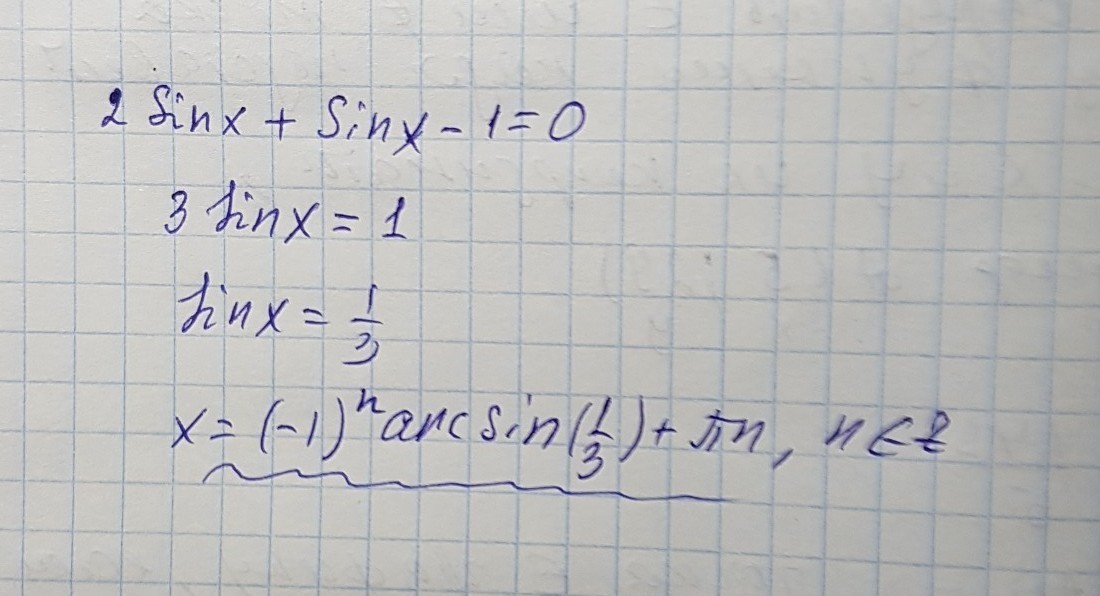 2 sin x + sin x - 1 = 0
3 sin x = 1
sin x = 1/3
x = (-1)ⁿ arcsin(1/3) + πn, n ∈ Z